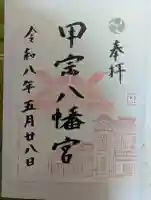 奉拝
甲宗八幡宮
令和八年五月廿八日